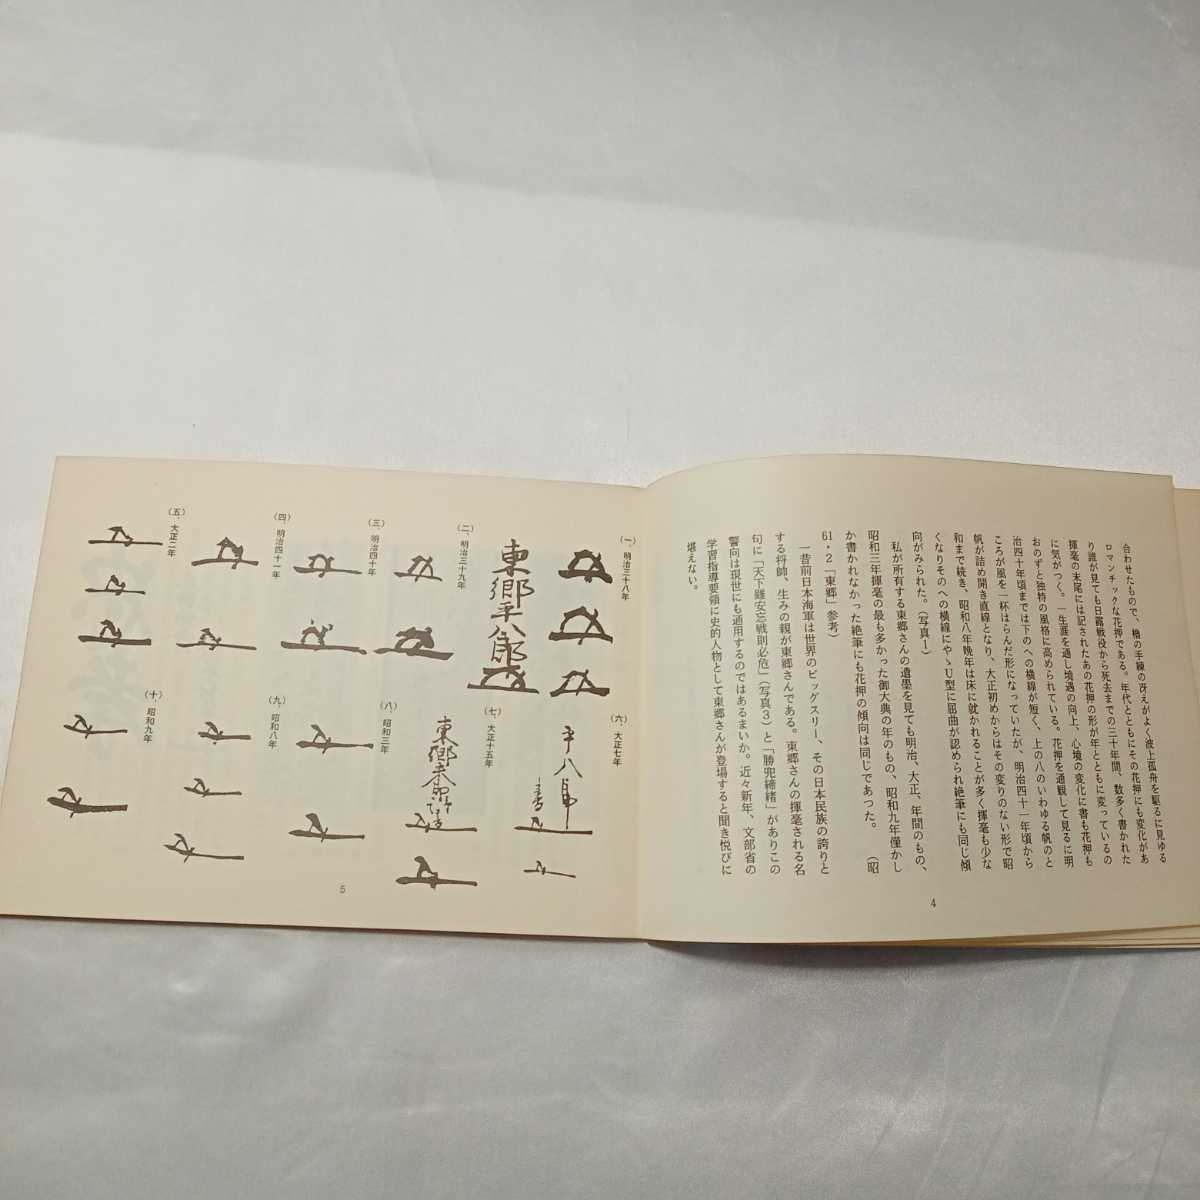 合わせたもので、櫓の手練の冴えがよく波上孤舟を駆るに見ゆる
ロマンチックな花押である。年代とともにその花押にも変化があ
り誰が見ても日露戦役から死去までの三十年間、数多く書かれた
揮毫の末尾には記されたあの花押の形が年とともに変っているの
に気がつく。一生涯を通し境遇の向上、心境の変化に書も花押も
おのずと独特の風格に高められている。花押を通観して見るに明
治四十年頃までは下のへの横線が短く、上の八のいわゆる帆のと
ころが風を一杯はらんだ形になっていたが、明治四十一年頃から
帆が詰め開き直線となり、大正初めからはその変りのない形で昭
和まで続き、昭和八年晩年は床に就かれることが多く揮毫も少な
くなりそのへの横線にやゝU型に屈曲が認められ絶筆にも同じ傾
向がみられた。（写真1）
私が所有する東郷さんの遺墨を見ても明治、大正、年間のもの、
昭和三年揮毫の最も多かった御大典の年のもの、昭和九年僅かし
か書かれなかった絶筆にも花押の傾向は同じであつた。（昭
61・2「東郷」参考）
一昔前日本海軍は世界のビッグスリー、その日本民族の誇りと
する将帥、生みの親が東郷さんである。東郷さんの揮毫される名
句に「天下雖安忘戦則必危」（写真3）と「勝兜締緒」がありこの
警向は現世にも通用するのではあるまいか。近々新年、文部省の
学習指導要領に史的人物として東郷さんが登場すると聞き悦びに
堪えない。
4
（一、明治三十八年
東郷平八郎
（二、明治三十九年
（三、明治四十年
（四、明治四十一年
（五、大正二年
（六、大正七年
平八郎
（七、大正十五年
東郷
（八、昭和三年
（九、昭和八年
（十、昭和九年
5